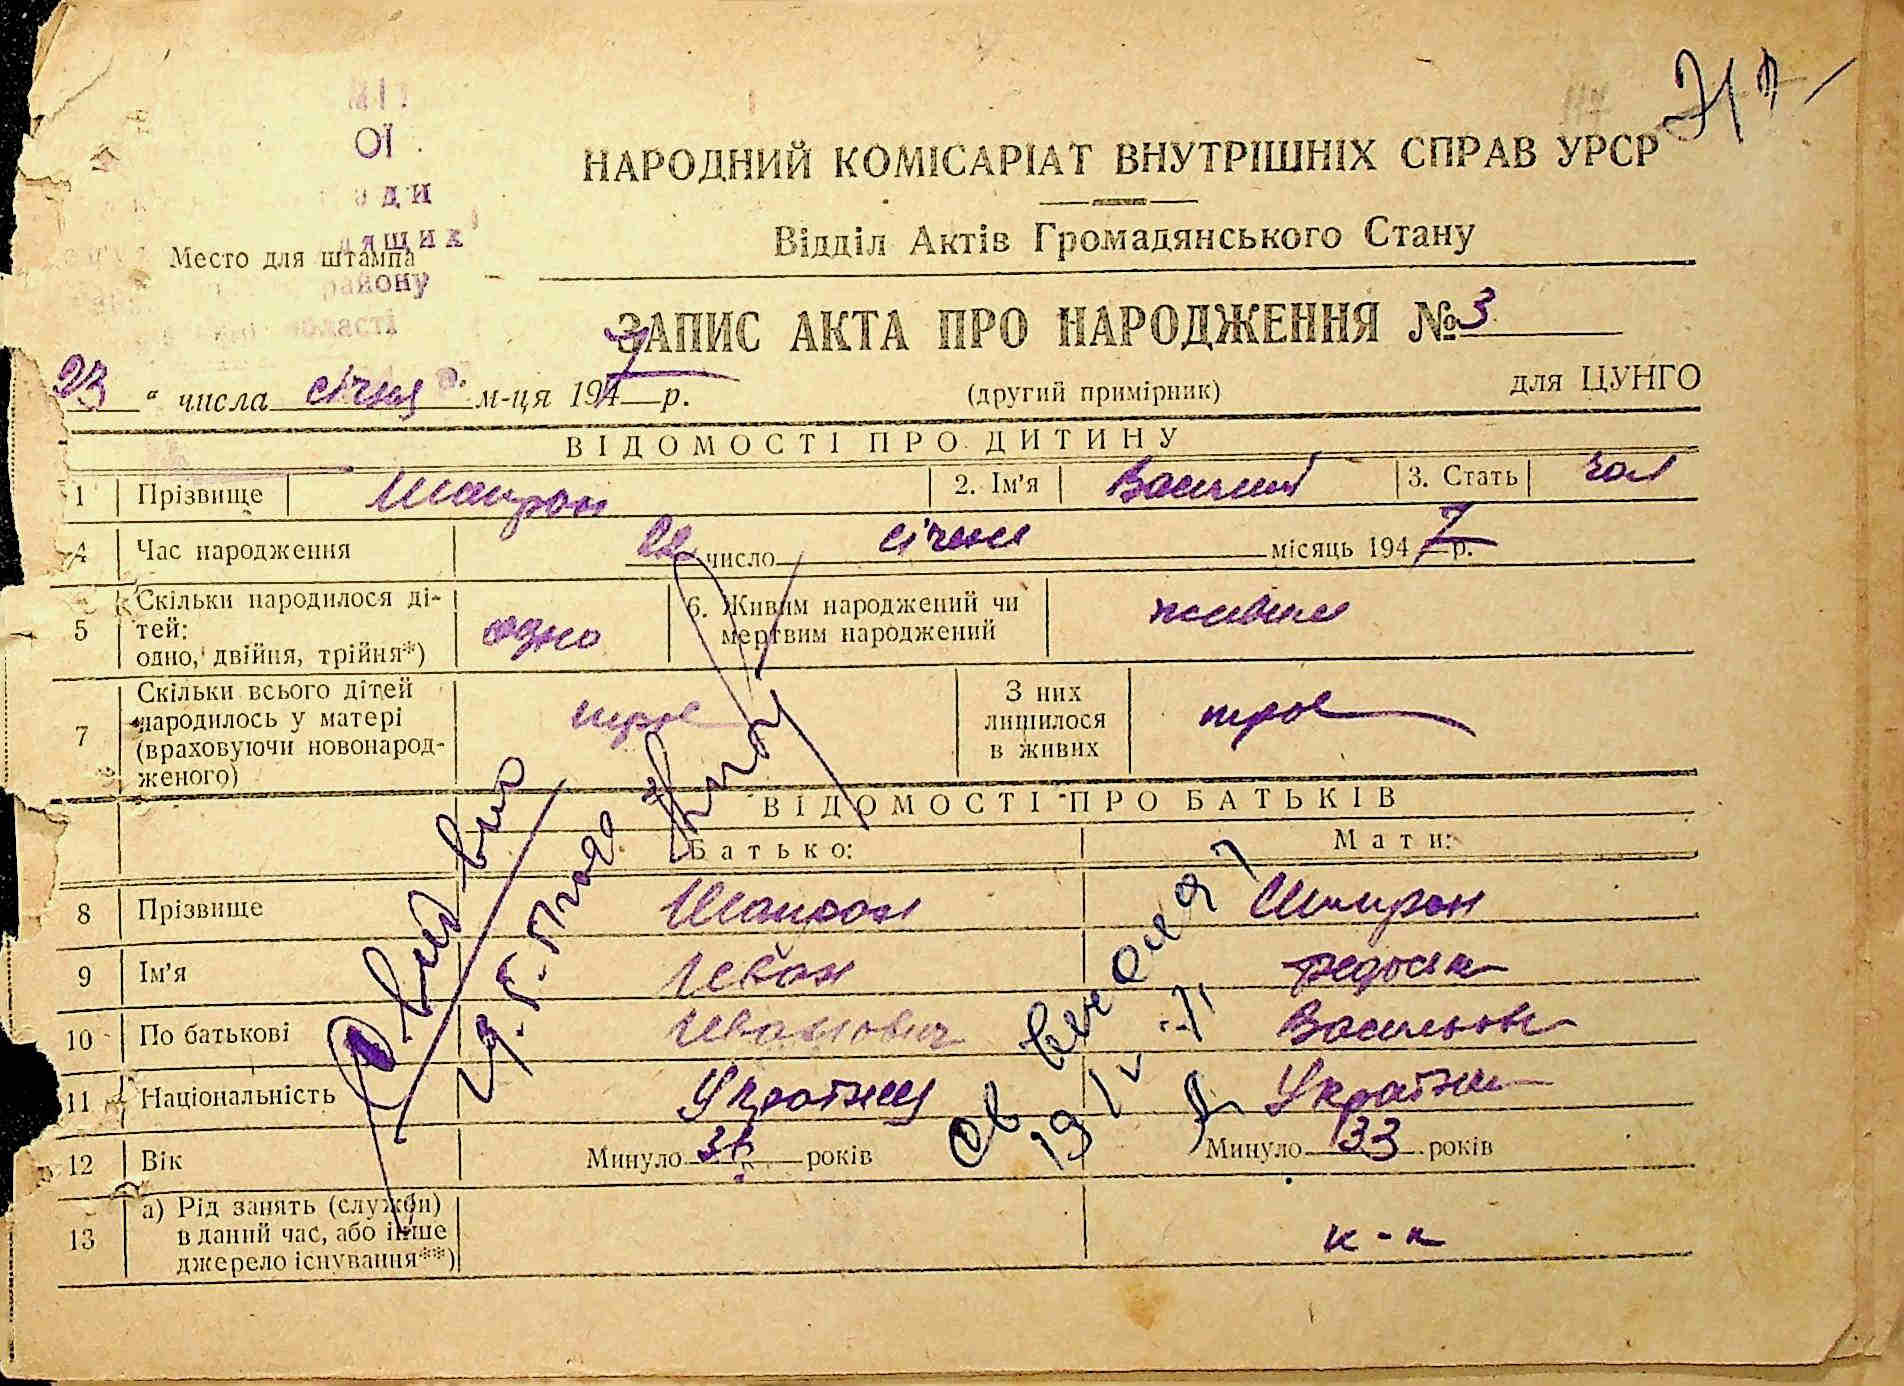 ОЇ
ДЯЩИХ
Место для штампа
району
області
НАРОДНИЙ КОМІСАРІАТ ВНУТРІШНІХ СПРАВ УРСР
Відділ Актів Громадянського Стану
ЗАПИС АКТА ПРО НАРОДЖЕННЯ № 3
23 " числа січня м-ця 1947 р.
(другий примірник)
для ЦУНГО
ВІДОМОСТІ ПРО ДИТИНУ
1 Прізвище Шапрон 2. Ім'я Василий 3. Стать чол
4 Час народження число січень місяць 1947 р.
5 Скільки народилося ді-
тей:
одно, двійня, трійня*) одно
6. Живим народжений чи
мертвим народжений живим
7 Скільки всього дітей
народилось у матері
(враховуючи новонарод-
женого) троє
З них
лишилося
в живих троє
ВІДОМОСТІ ПРО БАТЬКІВ
Батько: Мати:
8 Прізвище Шапрон Шапрон
9 Ім'я Іван Федоська
10 По батькові Іванович Васильовн
11 Національність Українец Українка
12 Вік Минуло років Минуло 33 років
13 а) Рід занять (служби)
в даний час, або інше
джерело існування**) к-к